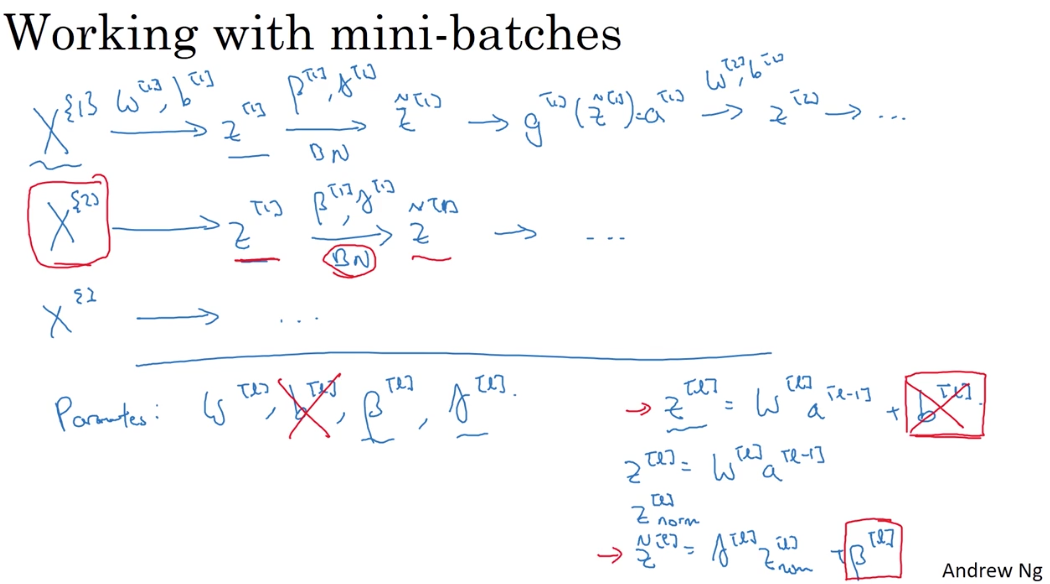 Working with mini-batches
X^{1} —W^[1], b^[1]→ z^[1] —β^[1], γ^[1] / BN→ z̃^[1] → g^[1](z̃^[1]) = a^[1] —W^[2], b^[2]→ z^[2] → ...
X^{2} → z^[1] —β^[1], γ^[1] / BN→ z̃^[1] → ...
X^{3} → ...
Parameters: W^[l], b^[l], β^[l], γ^[l].
→ z^[l] = W^[l] a^[l-1] + b^[l]
z^[l] = W^[l] a^[l-1]
z^[l]_norm
→ z̃^[l] = γ^[l] z^[l]_norm + β^[l]
Andrew Ng